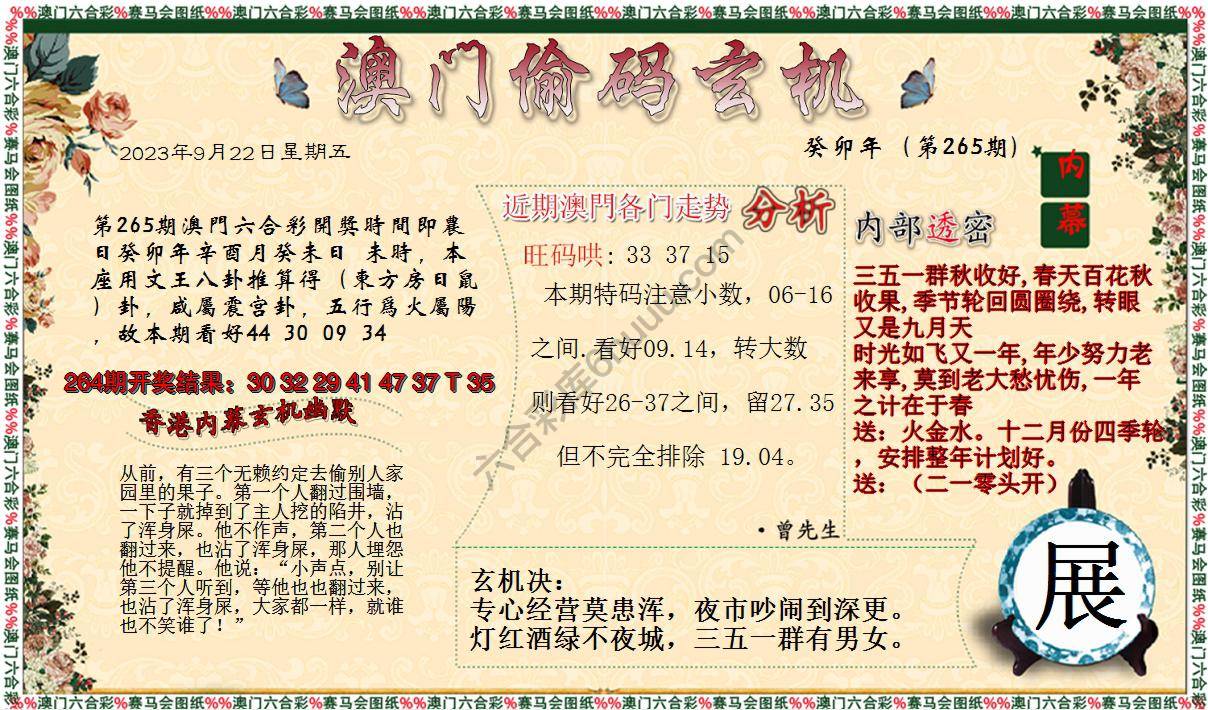 %%澳门六合彩%赛马会图纸%%澳门六合彩%赛马会图纸%%澳门六合彩%赛马会图纸%%澳门六合彩%赛马会图纸%%澳门六合彩%赛马会图纸%%澳门六合彩%赛马会图纸%%
澳门偷码玄机
2023年9月22日星期五
癸卯年（第265期）
内幕
第265期澳門六合彩開獎時間即農
日癸卯年辛酉月癸未日 未時，本
座用文王八卦推算得（東方房日鼠
）卦，咸屬震宫卦，五行爲火屬陽
，故本期看好44 30 09 34
264期开奖结果：30 32 29 41 47 37 T 35
香港内幕玄机幽默
从前，有三个无赖约定去偷别人家
园里的果子。第一个人翻过围墙，
一下子就掉到了主人挖的陷井，沾
了浑身屎。他不作声，第二个人也
翻过来，也沾了浑身屎，那人埋怨
他不提醒。他说：“小声点，别让
第三个人听到，等他也也翻过来，
也沾了浑身屎，大家都一样，就谁
也不笑谁了！”
近期澳門各门走势 分析
旺码哄: 33 37 15
本期特码注意小数，06-16
之间.看好09.14，转大数
则看好26-37之间，留27.35
但不完全排除 19.04。
·曾先生
内部透密
三五一群秋收好,春天百花秋
收果,季节轮回圆圈绕,转眼
又是九月天
时光如飞又一年,年少努力老
来享,莫到老大愁忧伤,一年
之计在于春
送：火金水。十二月份四季轮
，安排整年计划好。
送：（二一零头开）
玄机决：
专心经营莫患浑，夜市吵闹到深更。
灯红酒绿不夜城，三五一群有男女。
展